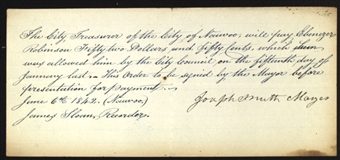 The City Treasurer of the City of Nauvoo, will pay Ebenezer
Robinson Fifty two Dollars and fifty Cents, which sum
was allowed him by the City Council on the fifteenth day of
January last. This Order to be signed by the Mayor before
presentation for payment.
June 6th 1842. (Nauvoo)
Joseph Smith Mayor
James Sloan, Recorder.